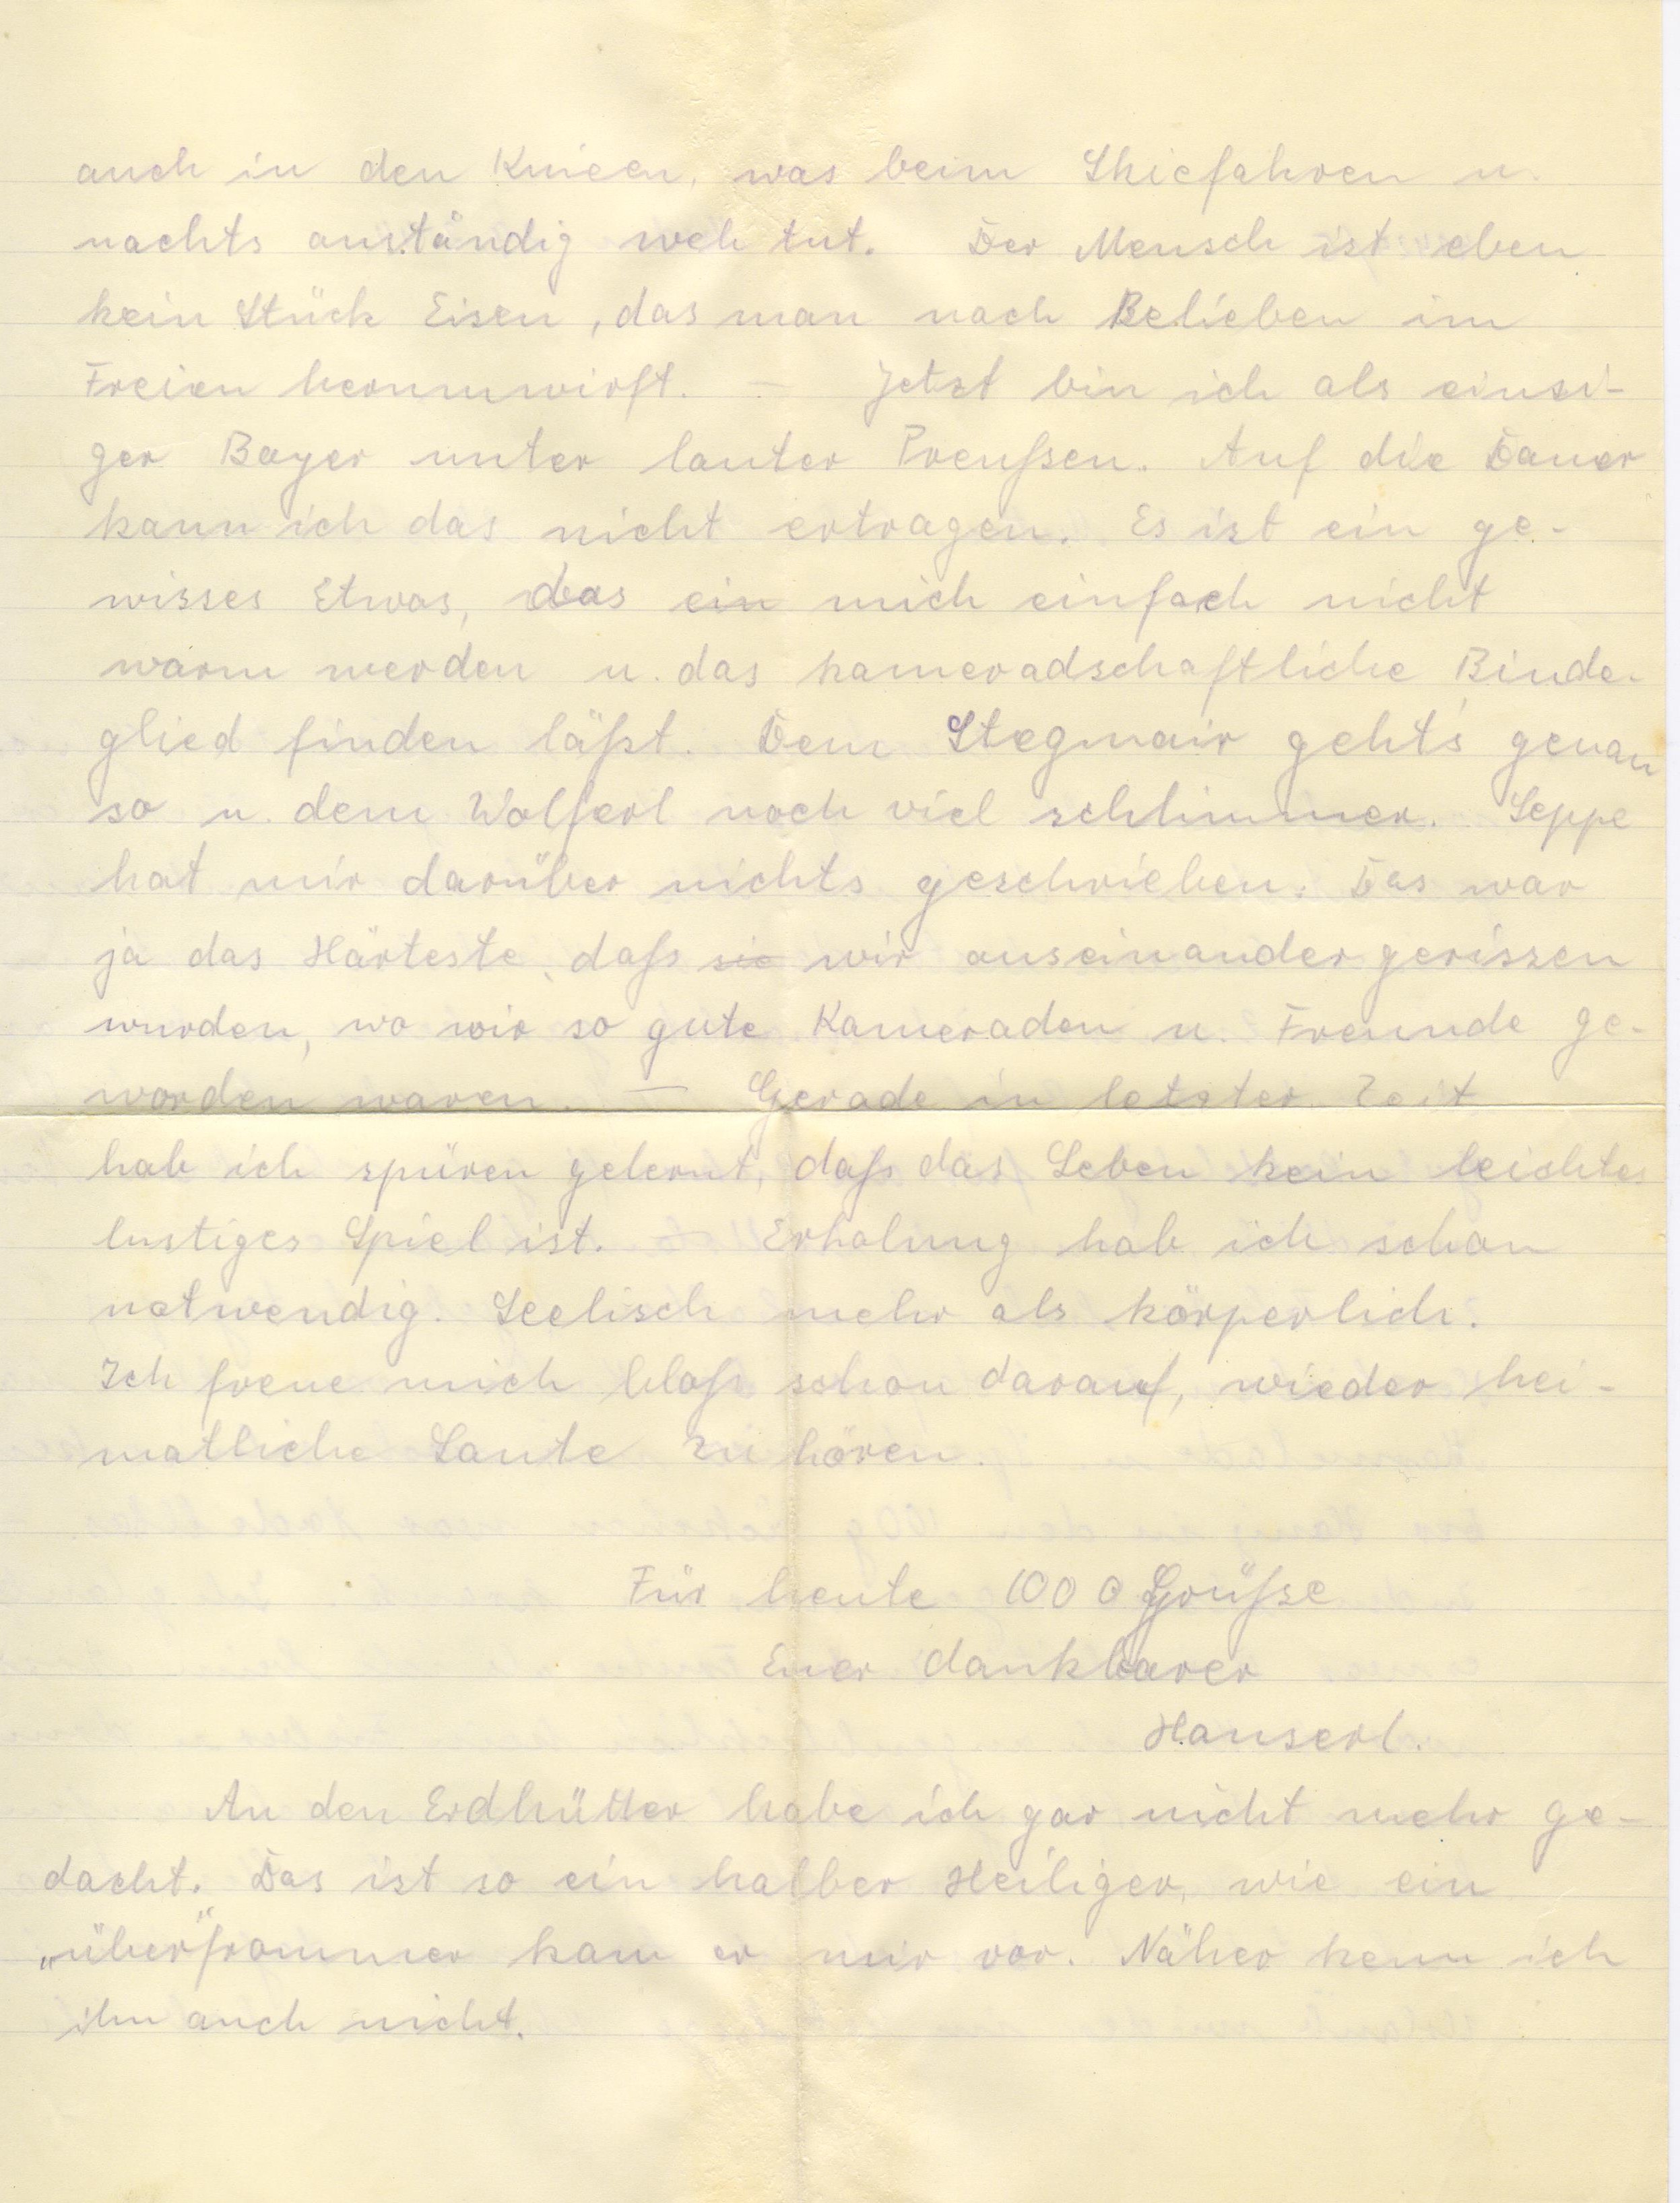 auch in den Knieen, was beim Skiefahren u.
nachts anständig weh tut. Der Mensch ist eben
kein Stück Eisen, das man nach Belieben im
Freien herumwirft. – Jetzt bin ich als einzi-
ger Bayer unter lauter Preußen. Auf die Dauer
kann ich das nicht ertragen. Es ist ein ge-
wisses Etwas, das ein mich einfach nicht
warm werden u. das kameradschaftliche Binde-
glied finden läßt. Dem Stegmair geht's genau
so u. dem Wolferl noch viel schlimmer. Seppe
hat mir darüber nichts geschrieben. Das war
ja das Härteste, daß sie wir auseinandergerissen
wurden, wo wir so gute Kameraden u. Freunde ge-
worden waren. – Gerade in letzter Zeit
hab ich spüren gelernt, daß das Leben kein leichtes
lustiges Spiel ist. Erholung hab ich schon
notwendig. Seelisch mehr als körperlich.
Ich freue mich bloß schon darauf, wieder hei-
matliche Laute zu hören.
Für heute 1000 Grüße
Euer dankbarer
Hanserl.
An den Erdhütter habe ich gar nicht mehr ge-
dacht. Das ist so ein halber Heiliger, wie ein
„über“frommer kam er mir vor. Näher kenn ich
ihn auch nicht.